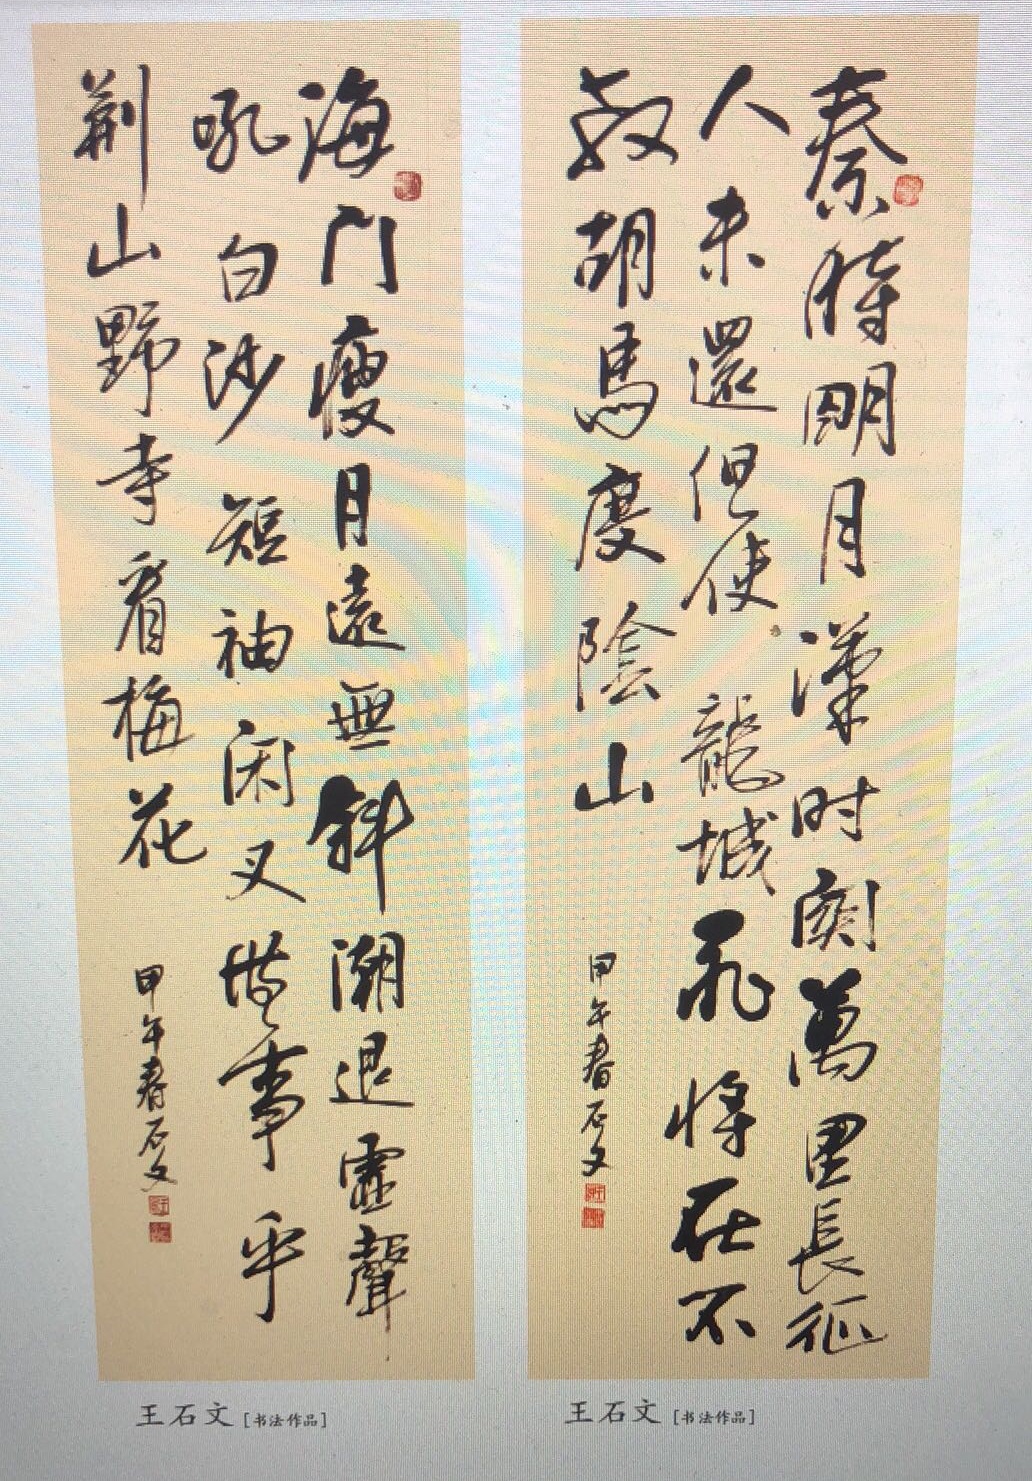 秦時明月漢时関萬里長征
人未還但使龍城飛將在不
教胡馬度陰山
甲午春石文
海門瘦月遠無斜潮退聲
吼白沙短袖闲叉事手
荆山野寺看梅花
甲午春石文
王石文［书法作品］
王石文［书法作品］